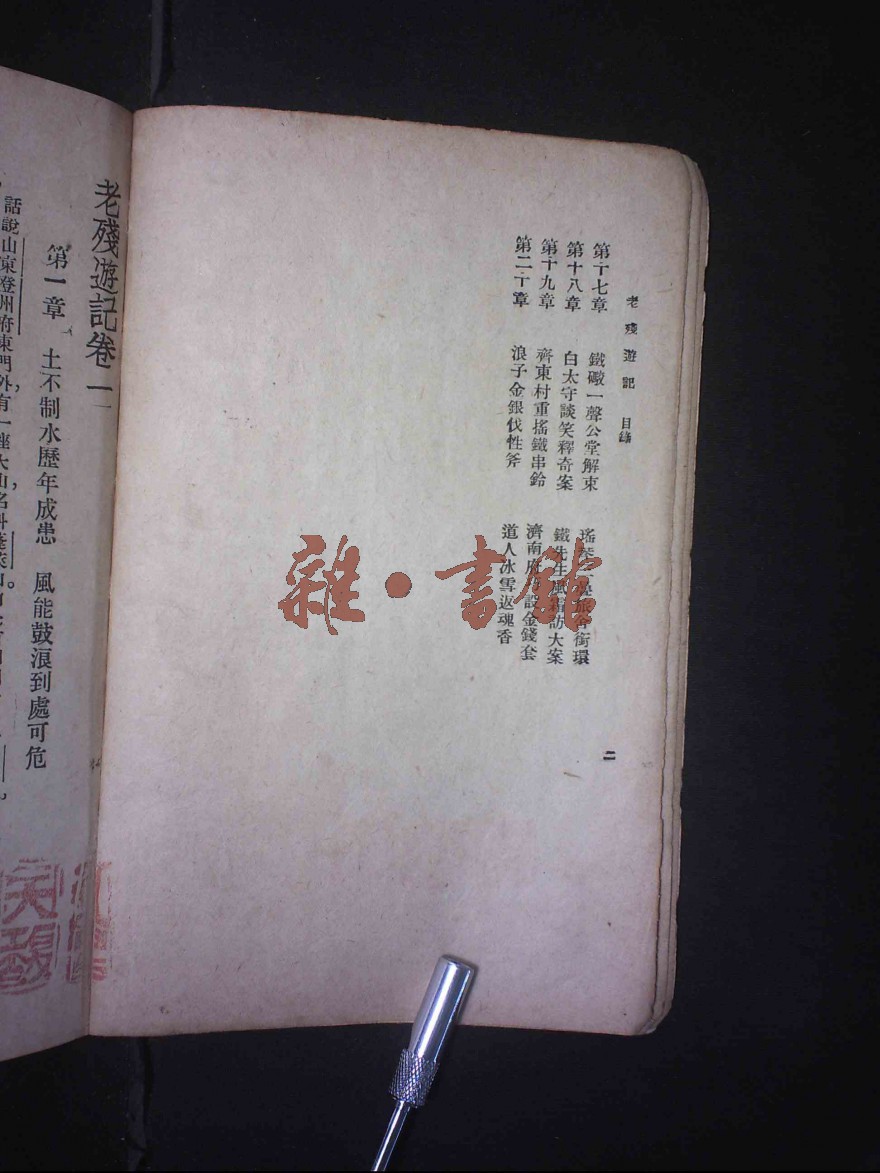 老殘遊記 目錄
第十七章 鐵礮一聲公堂解束 瑤琴 旅舍銜環
第十八章 白太守談笑釋奇案 鐵先生風霜訪大案
第十九章 齊東村重搖鐵串鈴 濟南府 設金錢套
第二十章 浪子金銀伐性斧 道人冰雪返魂香
二
雜·書館
老殘遊記卷一
第一章 土不制水歷年成患 風能鼓浪到處可危
話說山東登州府東門外有一座大山名叫蓬萊山